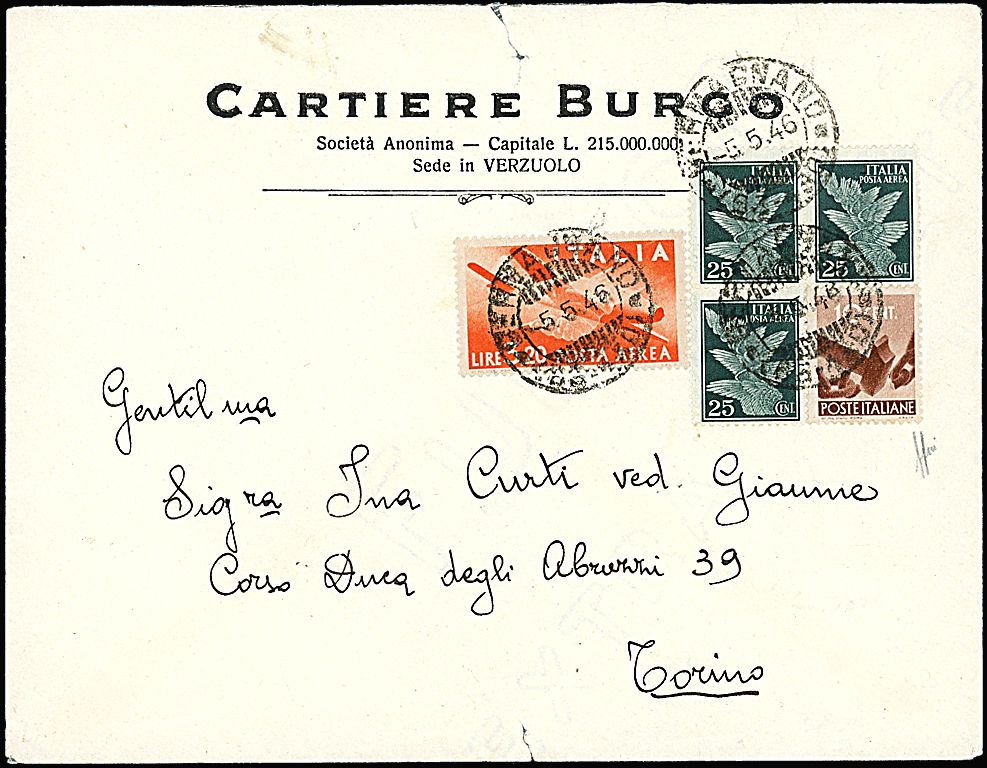 CARTIERE BURGO
Società Anonima — Capitale L. 215.000.000
Sede in VERZUOLO
-5.5.46
ITALIA
POSTA AEREA
25 CENT.
ITALIA
POSTA AEREA
25 CENT.
ITALIA
LIRE 3,20 POSTA AEREA
-5.5.46
ITALIA
POSTA AEREA
25 CENT.
POSTE ITALIANE
Gentilma
Sigra Ina Curti ved. Giaume
Corso Duca degli Abruzzi 39
Torino